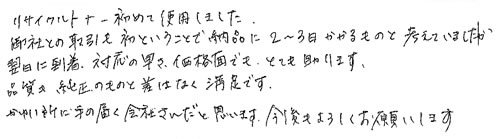 リサイクルトナー初めて使用しました.
御社との取引も初ということで納品に2〜3日かかるものと考えていましたが
翌日に到着、対応の早さ、価格面でも、とても助ります、
品質も純正のものと差はなく満足です.
かゆい所に手の届く会社さんだと思います. 今後もよろしくお願いします